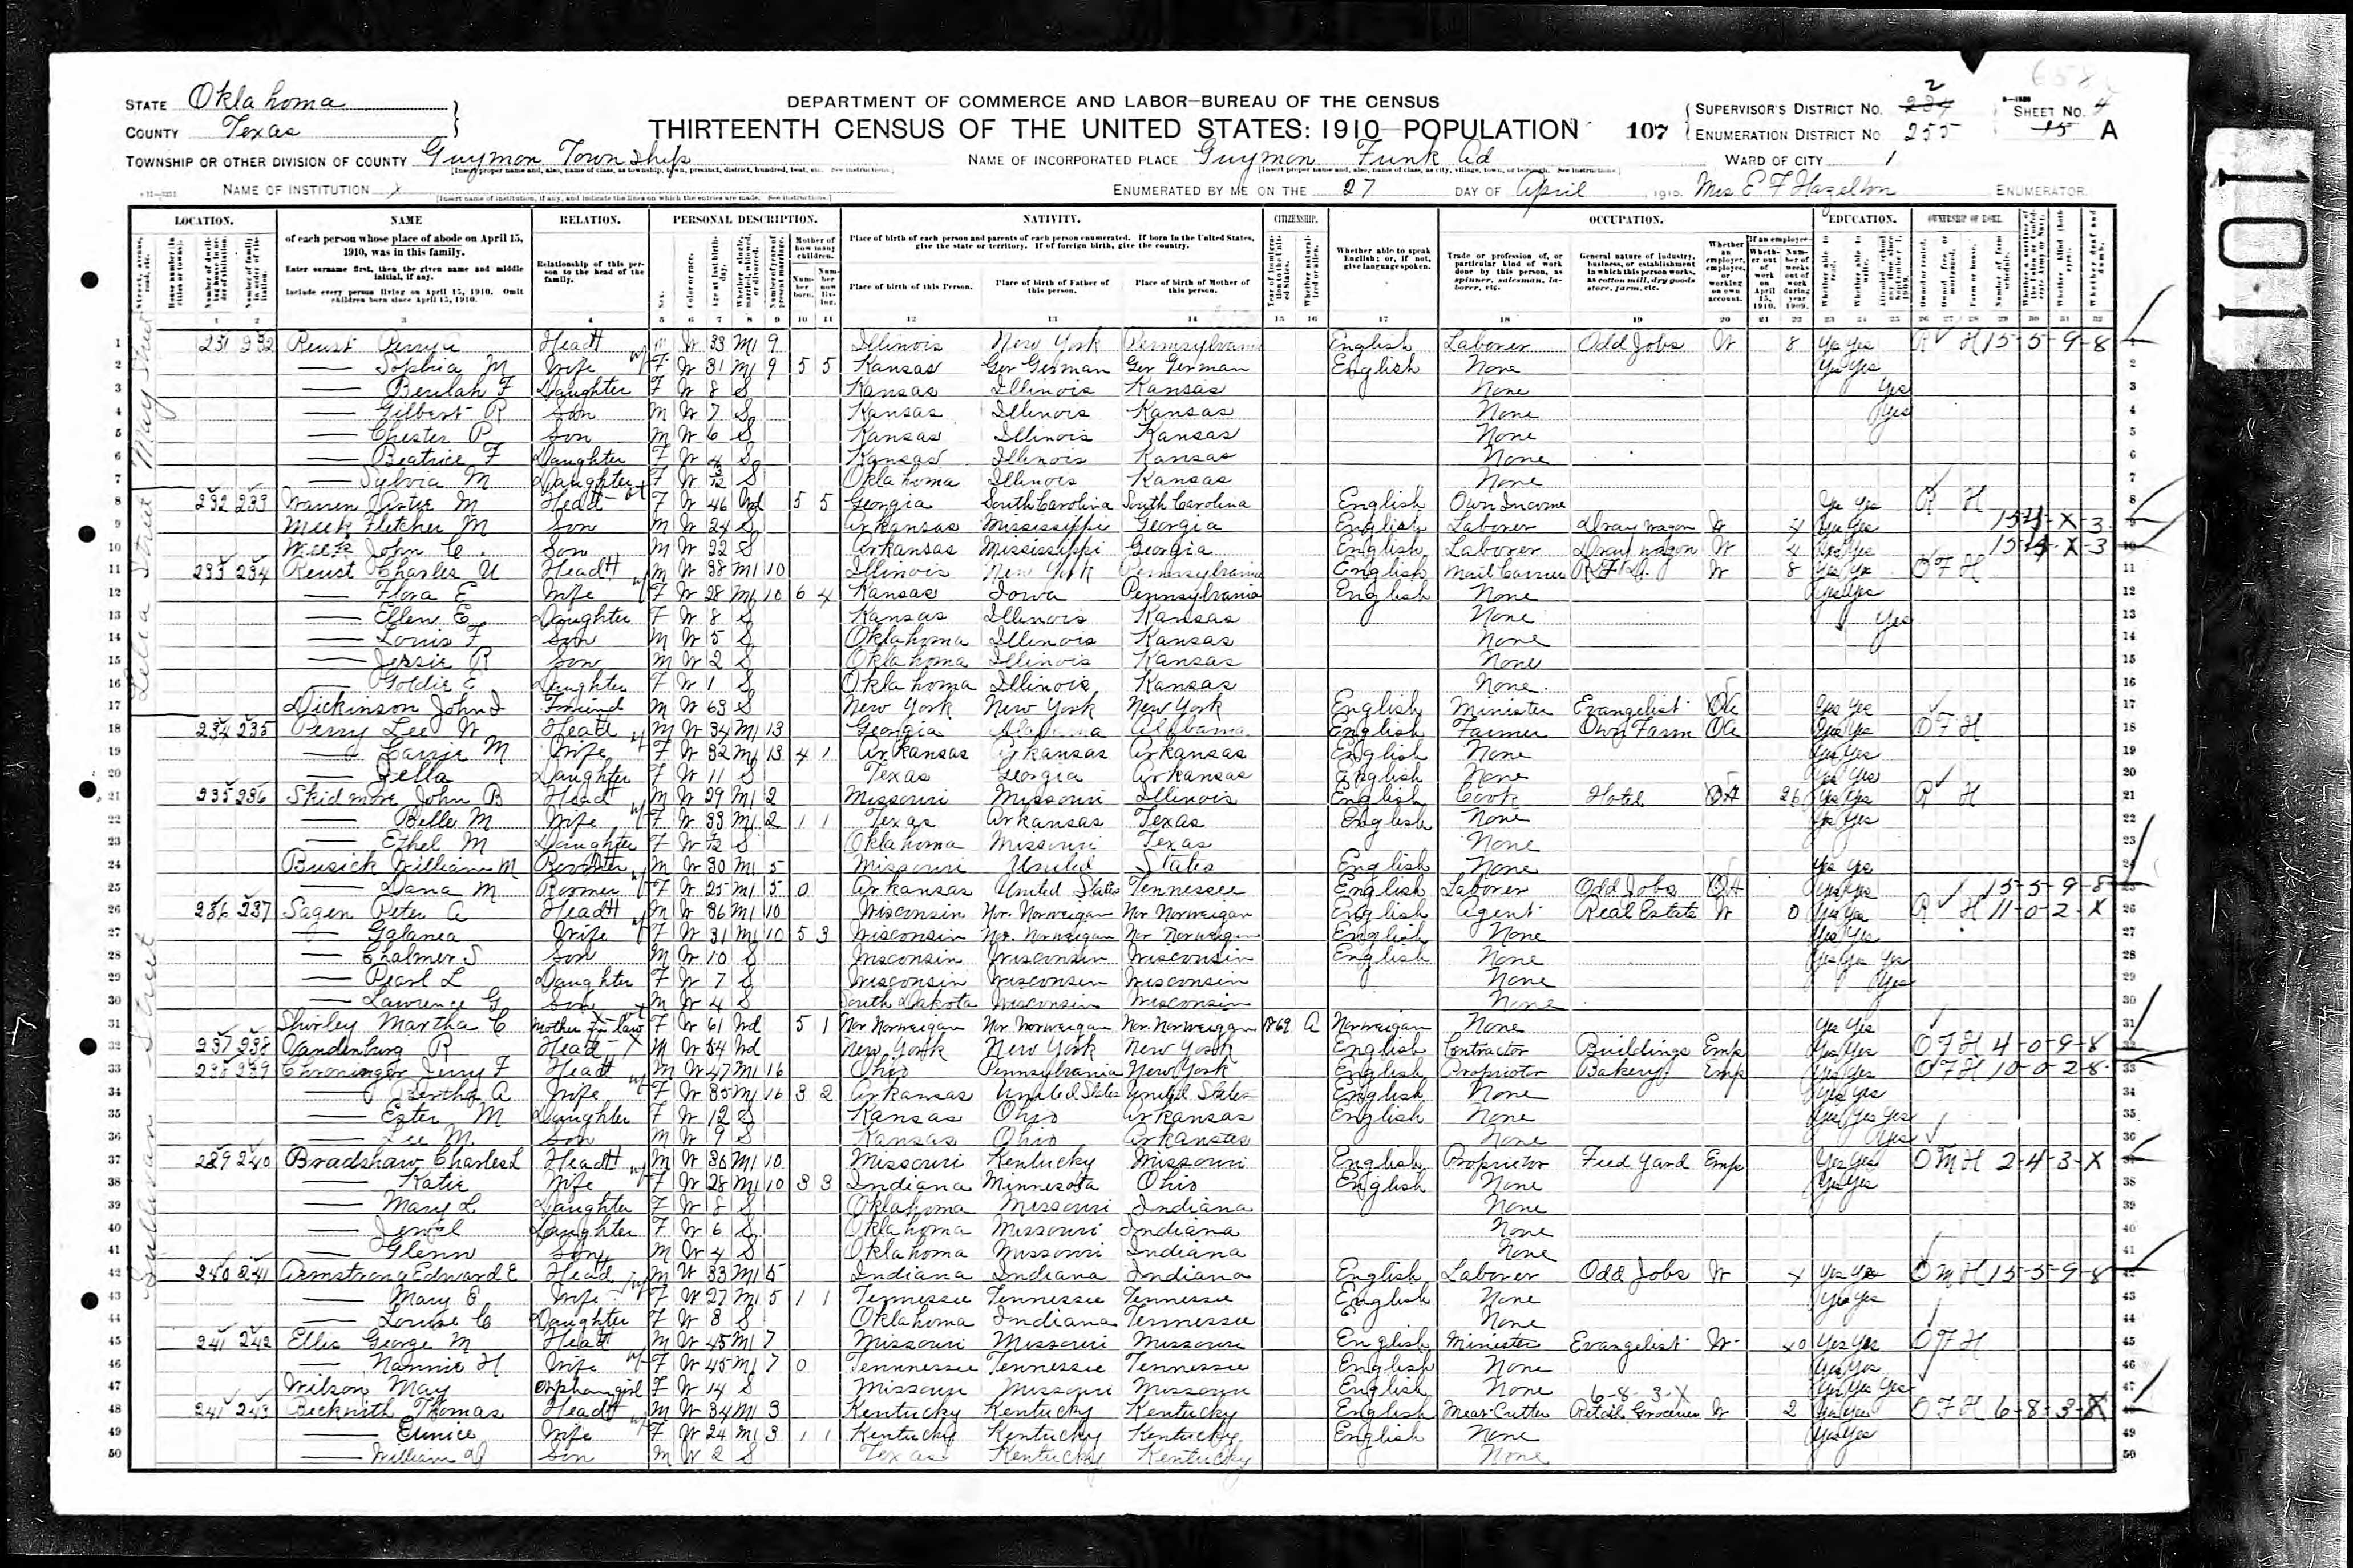 STATE Oklahoma
COUNTY Texas
DEPARTMENT OF COMMERCE AND LABOR—BUREAU OF THE CENSUS
THIRTEENTH CENSUS OF THE UNITED STATES: 1910 POPULATION
107
SUPERVISOR'S DISTRICT No. 2
ENUMERATION DISTRICT No 255
SHEET No. 4
15 A
TOWNSHIP OR OTHER DIVISION OF COUNTY Guymon Township
NAME OF INCORPORATED PLACE Guymon Funk Ad
WARD OF CITY 1
NAME OF INSTITUTION X
ENUMERATED BY ME ON THE 27 DAY OF April, 1910. Mrs E F Hazelton ENUMERATOR
LOCATION. NAME RELATION. PERSONAL DESCRIPTION. NATIVITY. CITIZENSHIP. OCCUPATION. EDUCATION. OWNERSHIP OF HOME.
of each person whose place of abode on April 15, 1910, was in this family.
Enter surname first, then the given name and middle initial, if any.
Include every person living on April 15, 1910. Omit children born since April 15, 1910.
Relationship of this person to the head of the family.
Place of birth of each person and parents of each person enumerated. If born in the United States, give the state or territory. If of foreign birth, give the country.
Place of birth of this Person. Place of birth of Father of this person. Place of birth of Mother of this person.
Whether able to speak English; or, if not, give language spoken.
Trade or profession of, or particular kind of work done by this person, as spinner, salesman, laborer, etc.
General nature of industry, business, or establishment in which this person works, as cotton mill, dry goods store, farm, etc.
1 231 232 Reust Head M W 33 M1 9 Illinois New York Pennsylvania English Laborer Odd Jobs W 8 Yes Yes R H 15-5-9-8
2 — Sophia M Wife F W 31 M1 9 5 5 Kansas Ger German Ger German English None Yes Yes
3 — Beulah F Daughter F W 8 S Kansas Illinois Kansas None Yes
4 — Gilbert R Son M W 7 S Kansas Illinois Kansas None Yes
5 — Chester P Son M W 6 S Kansas Illinois Kansas None
6 — Beatrice F Daughter F W 4 S Kansas Illinois Kansas None
7 — Sylvia M Daughter F W S Oklahoma Illinois Kansas None
8 232 233 Warren M Head F W 46 Wd 5 5 Georgia South Carolina South Carolina English Own Income Yes Yes R H
9 Meek Fletcher M Son M W 24 S Arkansas Mississippi Georgia English Laborer Dray wagon W 4 Yes Yes
10 Meek John C. Son M W 22 S Arkansas Mississippi Georgia English Laborer Dray wagon W 4 Yes Yes
11 233 234 Reust Charles U Head M W 38 M1 10 Illinois New York Pennsylvania English Mail Carrier R.F.D. W 8 Yes Yes O F H
12 — Flora E Wife F W 28 M1 10 6 4 Kansas Iowa Pennsylvania English None Yes Yes
13 — Ellen E Daughter F W 8 S Kansas Illinois Kansas None Yes
14 — Louis F Son M W 5 S Oklahoma Illinois Kansas None
15 — Jessie R Son M W 2 S Oklahoma Illinois Kansas None
16 — Goldie E Daughter F W 1 S Oklahoma Illinois Kansas None
17 Dickinson John Friend M W 63 S New York New York New York English Minister Evangelist OA Yes Yes
18 234 235 Perry Lee W Head M W 34 M1 13 Georgia Alabama Alabama English Farmer Own Farm OA Yes Yes O F H
19 — Carrie M Wife F W 32 M1 13 4 1 Arkansas Arkansas Arkansas English None Yes Yes
20 — Daughter F W 11 S Texas Georgia Arkansas English None Yes Yes
21 235 236 Skidmore John B Head M W 29 M1 2 Missouri Missouri Illinois English Cook Hotel 26 Yes Yes R H
22 — Belle M Wife F W 33 M1 2 1 1 Texas Arkansas Texas English None Yes Yes
23 — Ethel M Daughter F W S Oklahoma Missouri Texas None
24 Busick William M Roomer M W 30 M1 5 Missouri United States English None Yes Yes
25 — Dana M Roomer F W 25 M1 5 0 Arkansas United States Tennessee English Laborer Odd Jobs Yes Yes 15-5-9-8
26 236 237 Sagen Peter A Head M W 36 M1 10 Wisconsin Nor. Norweigan Nor Norweigan English Agent Real Estate W 0 Yes Yes R H 11-0-2-X
27 — Wife F W 31 M1 10 5 3 Wisconsin Nor. Norweigan Nor Norweigan English None Yes Yes
28 — Chalmer S Son M W 10 S Wisconsin Wisconsin Wisconsin English None Yes Yes Yes
29 — Pearl L Daughter F W 7 S Wisconsin Wisconsin Wisconsin None Yes
30 — Lawrence G Son M W 4 S South Dakota Wisconsin Wisconsin None
31 Shirley Martha C Mother in law F W 61 Wd 5 1 Nor Norweigan Nor. Norweigan Nor. Norweigan 1869 A Norweigan None Yes Yes
32 237 238 Vandenburg R Head M W 54 Wd New York New York New York English Contractor Buildings Emp Yes Yes O F H 4-0-9-8
33 238 239 Chroninger Jerry F Head M W 47 M1 16 Ohio Pennsylvania New York English Proprietor Bakery Emp Yes Yes O F H 10-0-2-8
34 — Bertha A Wife F W 35 M1 16 3 2 Arkansas United States United States English None Yes Yes
35 — Ester M Daughter F W 12 S Kansas Ohio Arkansas English None Yes Yes Yes
36 — Lee M Son M W 9 S Kansas Ohio Arkansas None Yes
37 239 240 Bradshaw Charles L Head M W 30 M1 10 Missouri Kentucky Missouri English Proprietor Feed Yard Emp Yes Yes O M H 2-4-3-X
38 — Katie Wife F W 28 M1 10 3 3 Indiana Minnesota Ohio English None Yes Yes
39 — Mary L Daughter F W 8 S Oklahoma Missouri Indiana None
40 — Jewel Daughter F W 6 S Oklahoma Missouri Indiana None
41 — Glenn Son M W 4 S Oklahoma Missouri Indiana None
42 240 241 Armstrong Edward E Head M W 33 M1 5 Indiana Indiana Indiana English Laborer Odd Jobs W 4 Yes Yes O M H 15-5-9-8
43 — Mary E Wife F W 27 M1 5 1 1 Tennessee Tennessee Tennessee English None Yes Yes
44 — Louise C Daughter F W 3 S Oklahoma Indiana Tennessee None
45 241 242 Ellis George M Head M W 45 M1 7 Missouri Missouri Missouri English Minister Evangelist W 40 Yes Yes O F H
46 — Nannie H Wife F W 45 M1 7 0 Tennnessee Tennessee Tennessee English None Yes Yes
47 Wilson May Orphan girl F W 14 S Missouri Missouri Missouri English None Yes Yes Yes
48 241 243 Beckwith Thomas Head M W 34 M1 3 Kentucky Kentucky Kentucky English Meat Cutter Retail Groceries W 2 Yes Yes O F H 6-8-3-X
49 — Eunice Wife F W 24 M1 3 1 1 Kentucky Kentucky Kentucky English None Yes Yes
50 — William Son M W 2 S Texas Kentucky Kentucky None
May Street
Lelia Street
Sullivan Street
1101